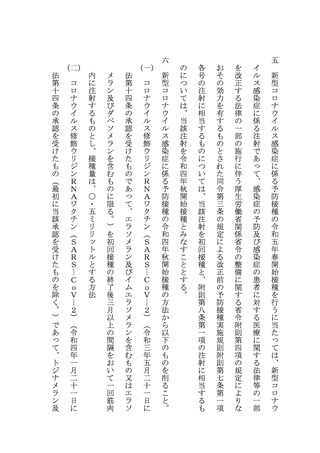 五　新型コロナウイルス感染症に係る予防接種の令和五年春開始接種を行うに当たっては、新型コロナウ
イルス感染症に係る注射であって、感染症の予防及び感染症の患者に対する医療に関する法律等の一部
を改正する法律の一部の施行に伴う厚生労働省関係省令の整備に関する省令附則第四項の規定によりな
おその効力を有するものとされた同令第三条の規定による改正前の予防接種実施規則附則第七条第一項
各号の注射に相当するものについては、当該注射を初回接種と、附則第八条第一項の注射に相当するも
のについては、当該注射を令和四年秋開始接種とみなすこととする。
六　新型コロナウイルス感染症に係る予防接種の令和四年秋開始接種の方法から以下のものを削ること。
（一）　コロナウイルス修飾ウリジンＲＮＡワクチン（ＳＡＲＳ－ＣｏＶ－２）（令和三年五月二十一日に
法第十四条の承認を受けたものであって、エラソメラン及びイムエラソメランを含むもの又はエラソ
メラン及びダベソメランを含むものに限る。）を初回接種の終了後三月以上の間隔をおいて一回筋肉
内に注射するものとし、接種量は、〇・五ミリリットルとする方法
（二）　コロナウイルス修飾ウリジンＲＮＡワクチン（ＳＡＲＳ－ＣｏＶ－２）（令和四年一月二十一日に
法第十四条の承認を受けたもの（最初に当該承認を受けたものを除く。）であって、トジナメラン及